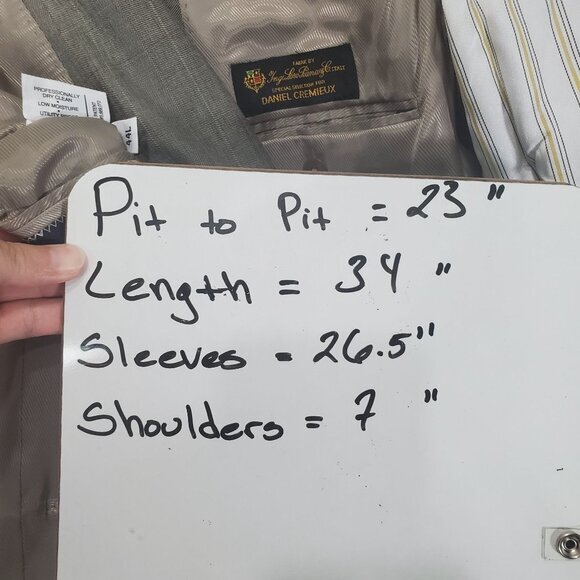 FABRIC BY
SPECIAL SELECTION FOR
DANIEL CREMIEUX
PROFESSIONALLY
DRY CLEAN
LOW MOISTURE
44L
Pit to Pit = 23"
Length = 34"
Sleeves = 26.5"
Shoulders = 7"